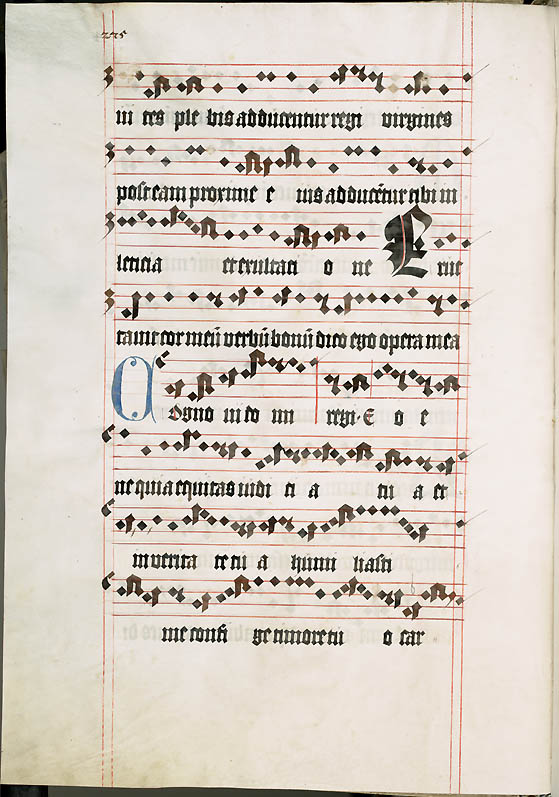 225
in tes ple bis adducentur regi virgines
post eam proxime e ius adducẽtur tibi in
lencia et exultaci o ne Eruc
tauit cor meũ verbũ bonũ dico ego opera mea
Cogno ui do mi regi. E o e
ne quia equitas iudi ci a tu a et
in verita te tu a humi liasti
me confi ge timore tu o car